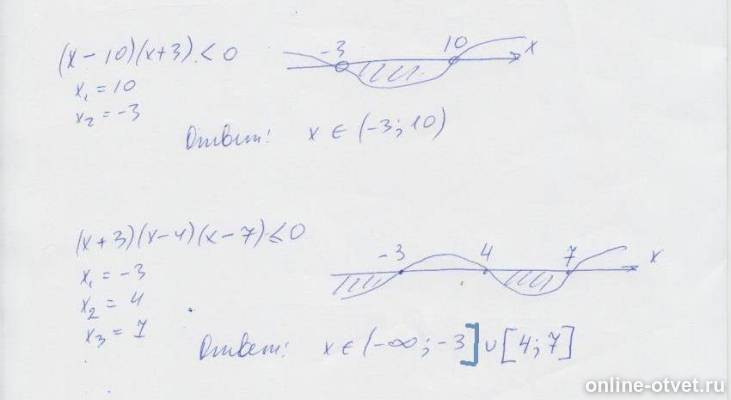 (x-10)(x+3)<0
-3 10 x
x₁ = 10
x₂ = -3
Ответ: x ∈ (-3; 10)
(x+3)(x-4)(x-7)≤0
-3 4 7 x
x₁ = -3
x₂ = 4
x₃ = 7
Ответ: x ∈ (-∞; -3] ∪ [4; 7]
online-otvet.ru